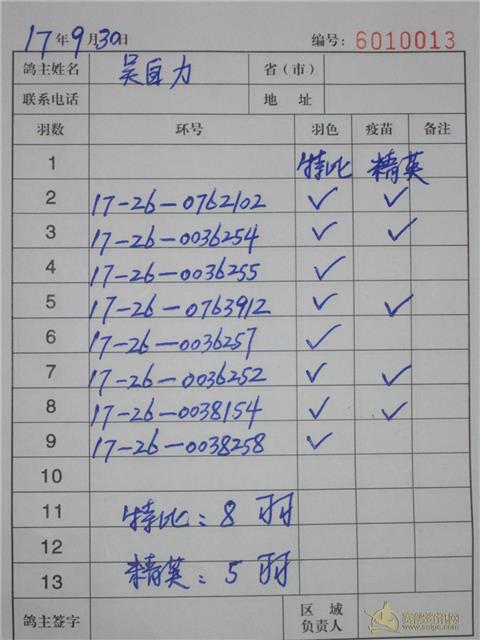 17年9月30日 编号: 6010013
鸽主姓名 吴自力 省(市)
联系电话 地 址
羽数 环号 羽色 疫苗 备注
1 特比 精英
2 17-26-0762102 ✓ ✓
3 17-26-0036254 ✓ ✓
4 17-26-0036255 ✓
5 17-26-0763912 ✓ ✓
6 17-26-0036257 ✓
7 17-26-0036252 ✓ ✓
8 17-26-0038154 ✓ ✓
9 17-26-0038258 ✓
10
11 特比: 8羽
12
13 精英: 5羽
鸽主签字 区 域
负责人
赛鸽资讯网
www.saige.com